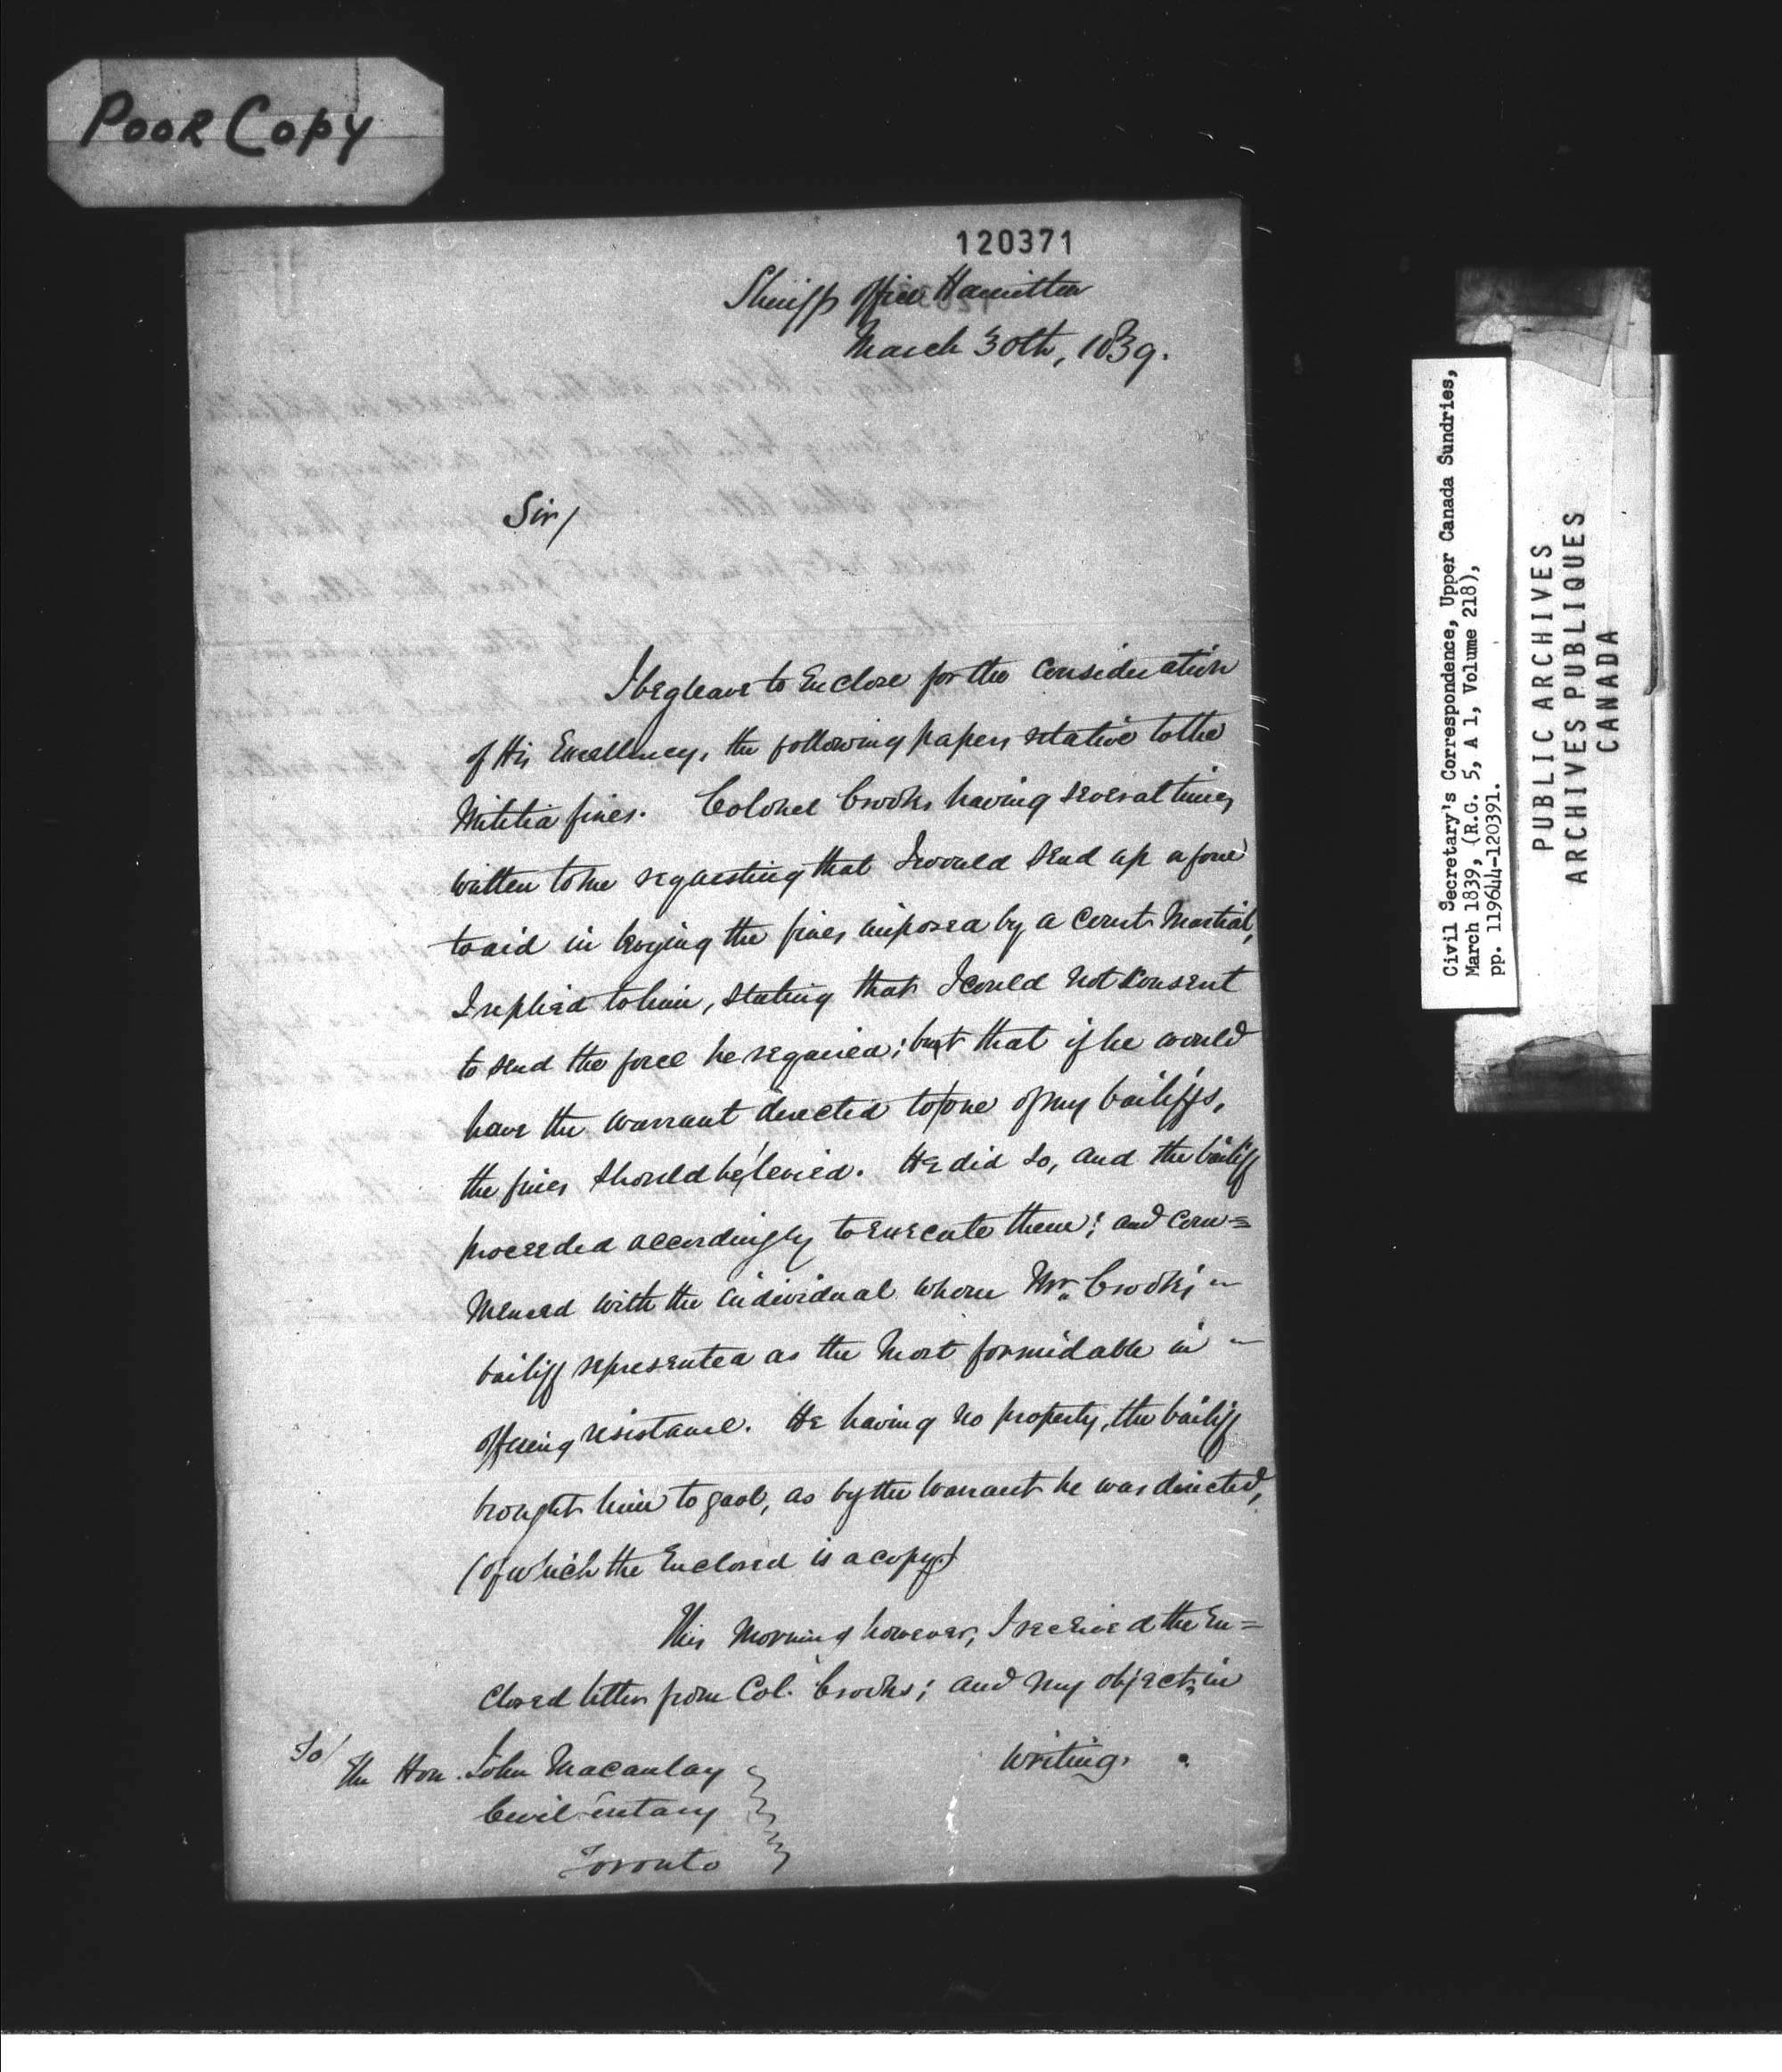 Poor Copy
120371
Sheriffs office Hamilton
March 30th, 1839.
Sir/
I beg leave to Enclose for the Consideration
of His Excellency, the following papers relative to the
Militia fines. Colonel Crooks having several times
written to me requesting that I would send up a force
to aid in levying the fines imposed by a Court Martial,
I replied to him, stating that I could not consent
to send the force he required; but that if he would
have the warrant directed to one of my bailiffs,
the fines should be levied. He did so, and the bailiff
proceeded accordingly to execute them; and com=
menced with the individual whom Mr. Crooks'
bailiff represented as the most formidable in
offering resistance. He having no property, the bailiff
brought him to gaol, as by the Warrant he was directed,
(of which the Enclosed is a copy)
This Morning however, I received the En=
closed letter from Col. Crooks; and my object, in
writing.
To/
The Hon. John Macaulay
Civil
Toronto
Civil Secretary's Correspondence, Upper Canada Sundries,
March 1839, (R.G. 5, A 1, Volume 218),
pp. 119644-120391.
PUBLIC ARCHIVES
ARCHIVES PUBLIQUES
CANADA